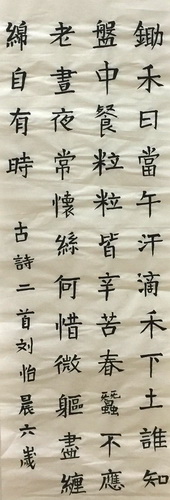 鋤禾日當午汗滴禾下土誰知
盤中餐粒粒皆辛苦春蠶不應
老晝夜常懷絲何惜微軀盡纏
綿自有時
古詩二首刘怡晨六歲